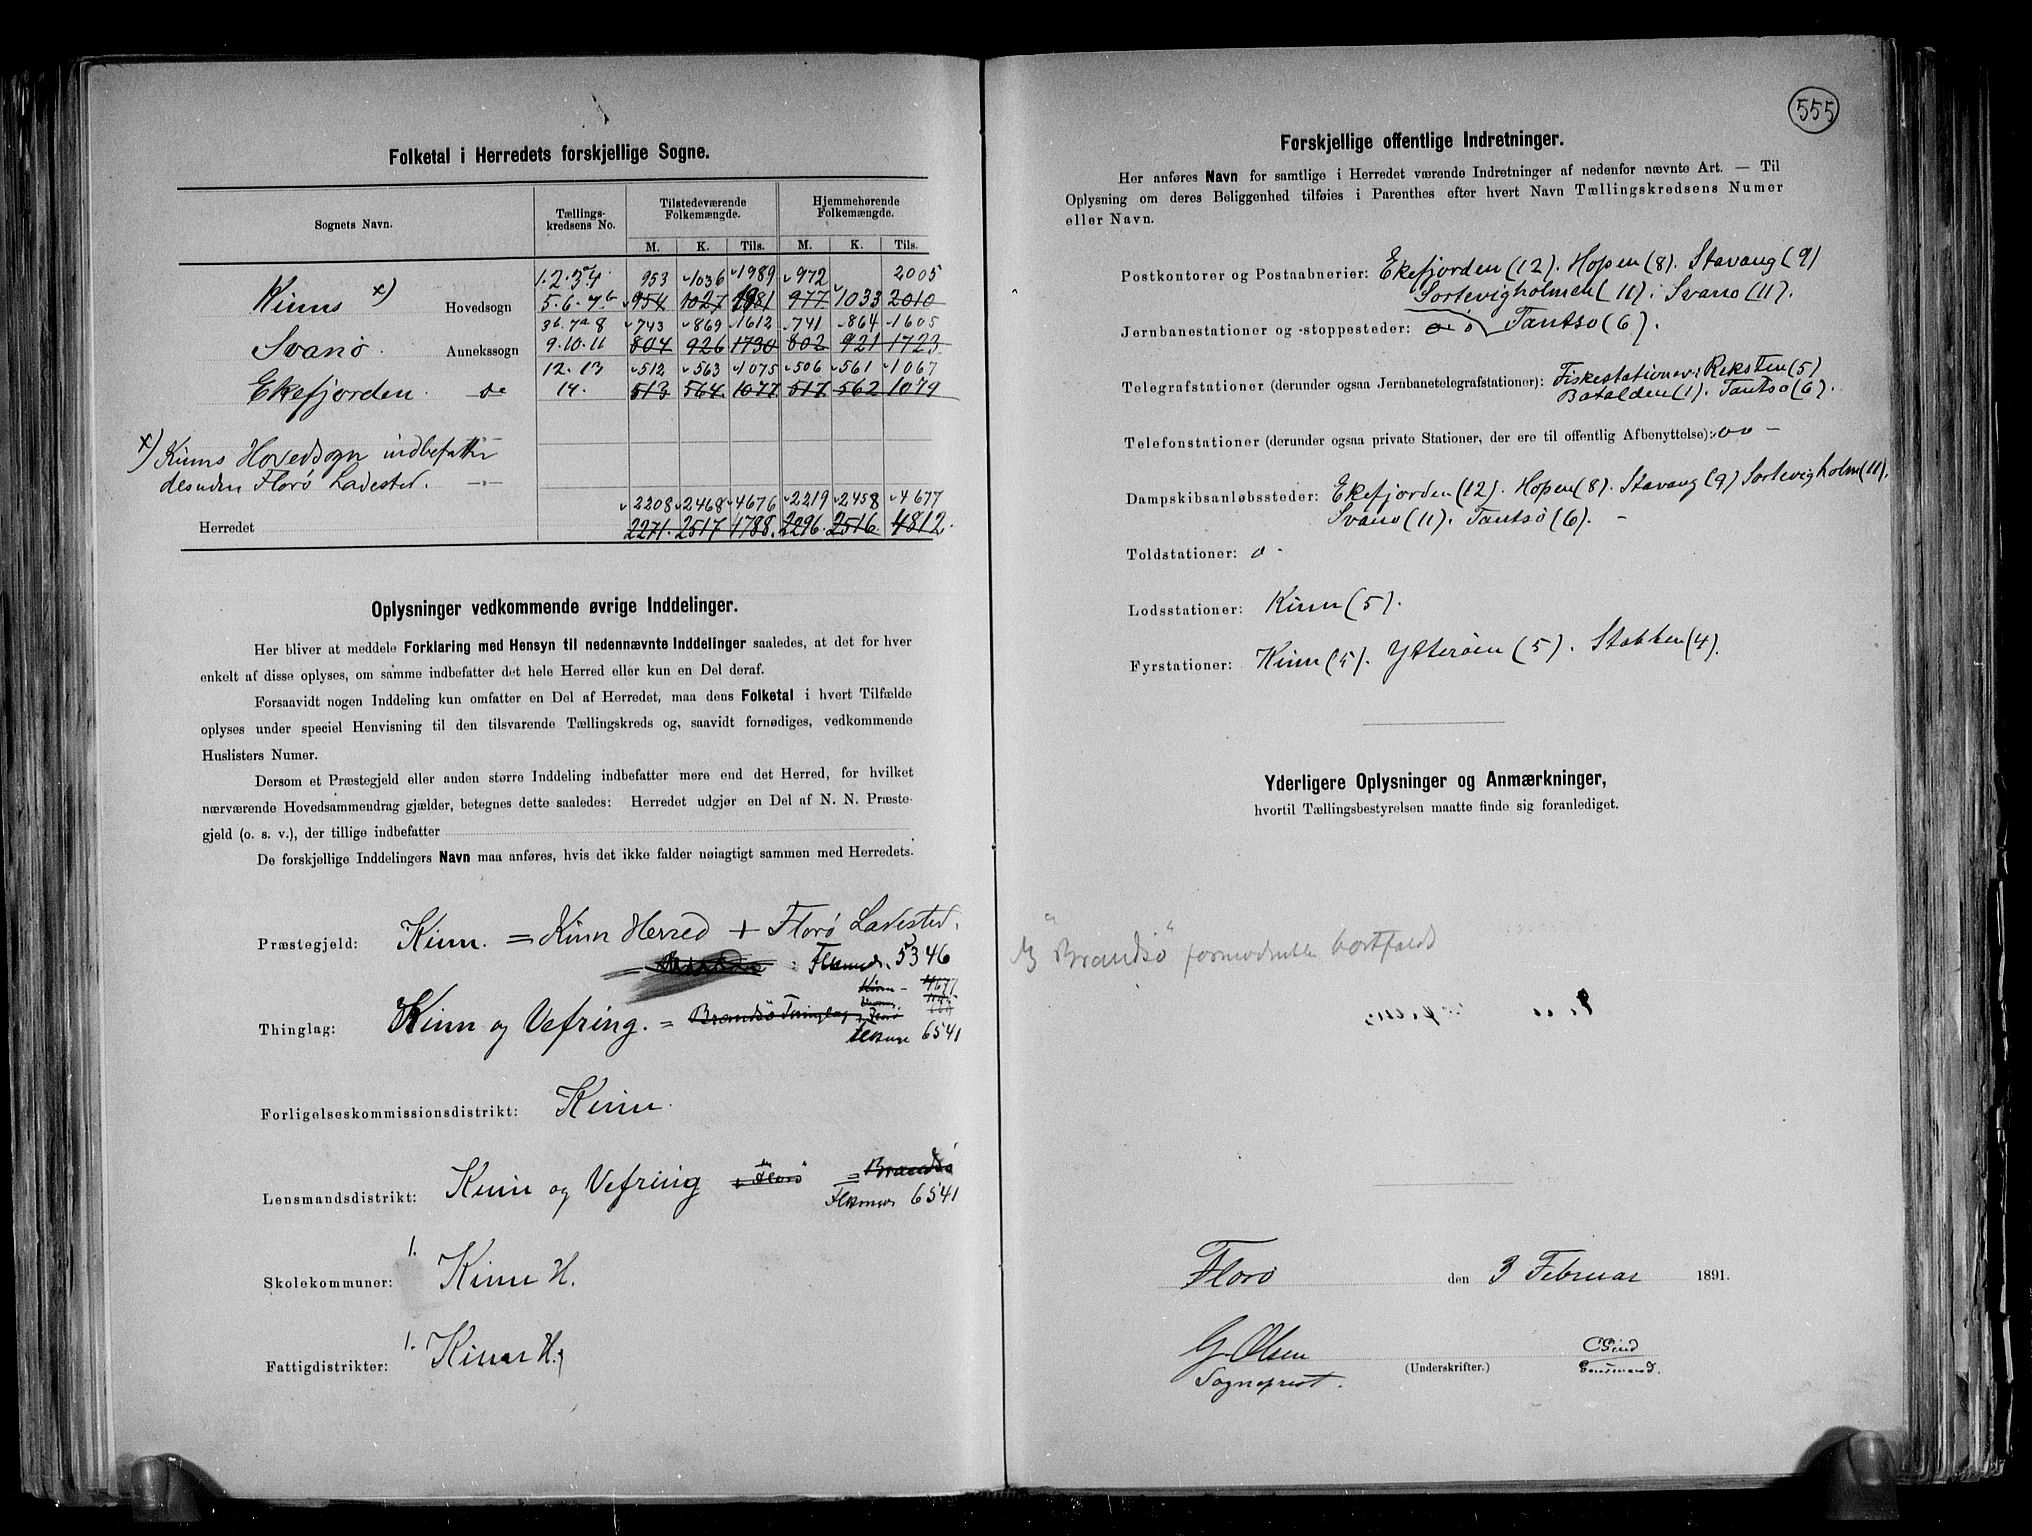 Folketal i Herredets forskjellige Sogne.
Sognets Navn.
Tællings-
kredsens No.
Tilstedeværende
Folkemængde.
Hjemmehørende
Folkemængde.
M. K. Tils. M. K. Tils.
1.2.3a4 953 1036 1989 972 2005
Kinns x) Hovedsogn 5.6.7b 954 1027 1981 977 1033 2010
3b.7a 8 743 869 1612 741 864 1605
Svanø Annekssogn 9.10.11 804 926 1730 802 921 1723
12.13 512 563 1075 506 561 1067
Ekefjorden do 14. 513 564 1077 517 562 1079
x) Kinns Hovedsogn indbefatter
desuden Florø Ladested.
2208 2468 4676 2219 2458 4677
Herredet 2271. 2517 4788. 2296. 2516 4812.
Oplysninger vedkommende øvrige Inddelinger.
Her bliver at meddele Forklaring med Hensyn til nedennævnte Inddelinger saaledes, at det for hver
enkelt af disse oplyses, om samme indbefatter det hele Herred eller kun en Del deraf.
Forsaavidt nogen Inddeling kun omfatter en Del af Herredet, maa dens Folketal i hvert Tilfælde
oplyses under speciel Henvisning til den tilsvarende Tællingskreds og, saavidt fornødiges, vedkommende
Huslisters Numer.
Dersom et Præstegjeld eller anden større Inddeling indbefatter mere end det Herred, for hvilket
nærværende Hovedsammendrag gjælder, betegnes dette saaledes: Herredet udgjør en Del af N. N. Præste-
gjeld (o. s. v.), der tillige indbefatter
De forskjellige Inddelingers Navn maa anføres, hvis det ikke falder nøiagtigt sammen med Herredets.
Præstegjeld: Kinn. = Kinn Herred + Florø Ladested.
Flkmd. 5346
Kinn - 4677
Thinglag: Kinn og Vefring. = Brandsø Tinglag
6541
Forligelseskommissionsdistrikt: Kinn.
Lensmandsdistrikt: Kinn og Vefring + Florø = Brandsø
6541
Skolekommuner: 1. Kinn H.
Fattigdistrikter: 1. Kinn H.
555
Forskjellige offentlige Indretninger.
Her anføres Navn for samtlige i Herredet værende Indretninger af nedenfor nævnte Art. — Til
Oplysning om deres Beliggenhed tilføies i Parenthes efter hvert Navn Tællingskredsens Numer
eller Navn.
Postkontorer og Postaabnerier: Ekefjorden (12). Hopen (8). Stavang (9)
Sortevigholmen (11). Svanø (11).
Jernbanestationer og -stoppesteder: o Tantsø (6).
Telegrafstationer (derunder ogsaa Jernbanetelegrafstationer): Fiskestationer: Reksten (5)
Batalden (1). Tantsø (6).
Telefonstationer (derunder ogsaa private Stationer, der ere til offentlig Afbenyttelse): o
Dampskibsanløbssteder: Ekefjorden (12). Hopen (8). Stavang (9) Sortevigholm (11).
Svanø (11). Tantsø (6). -
Toldstationer: o -
Lodsstationer: Kinn (5).
Fyrstationer: Kinn (5). Ytterøen (5). Stabben (4).
Yderligere Oplysninger og Anmærkninger,
hvortil Tællingsbestyrelsen maatte finde sig foranlediget.
"Brandsø" formodentlig bortfaldt
Florø den 3 Februar 1891.
G. Olsen
(Underskrifter.)
Sogneprest.
Lensmand.